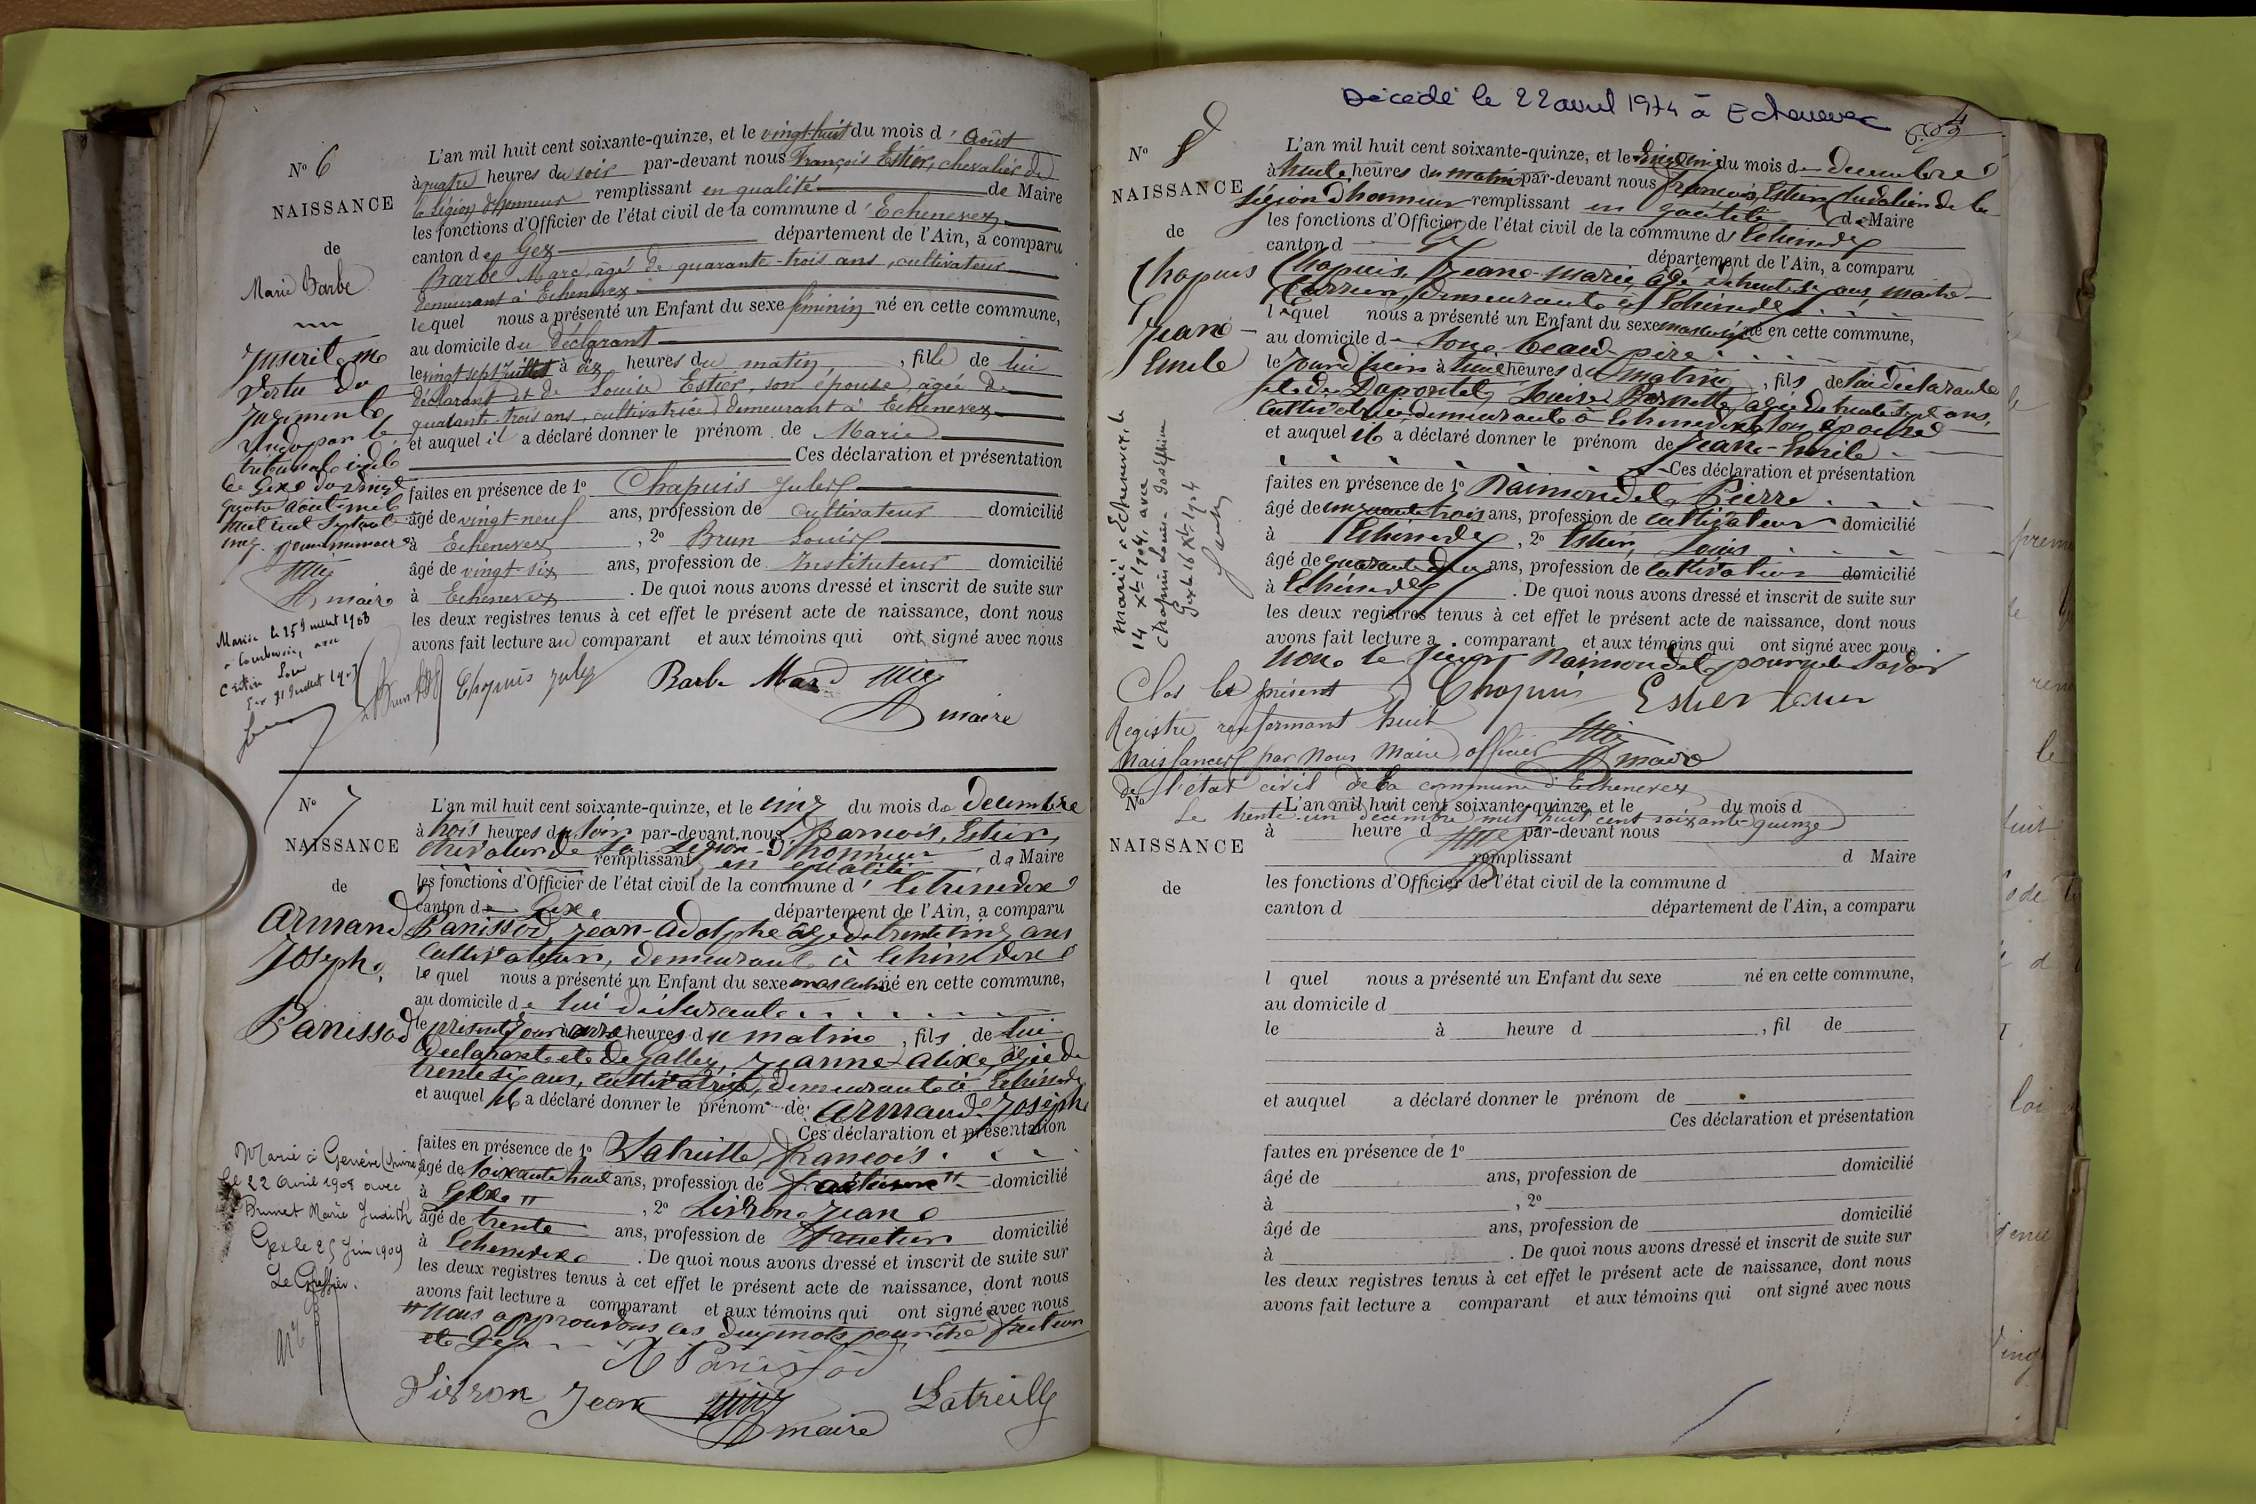 N° 6
NAISSANCE
de
Marie Barbe
Inscrit en
vertu du
jugement
rendu par le
tribunal civil
de Gex du vingt
quatre août mil
huit cent septante
cinq
maire
Mariée le 25 Juillet 1908
à Courbevoie, avec
L'an mil huit cent soixante-quinze, et le vingt-huit du mois d'Août
à quatre heures du soir par-devant nous François Estier, chevalier de
la Légion d'honneur remplissant en qualité de Maire
les fonctions d'Officier de l'état civil de la commune d'Echenevex
canton de Gex département de l'Ain, a comparu
Barbe Marc, âgé de quarante-trois ans, cultivateur
demeurant à Echenevex
lequel nous a présenté un Enfant du sexe féminin né en cette commune,
au domicile du déclarant
le vingt sept juillet à dix heures du matin, fille de lui
déclarant et de Louise Estier, son épouse, âgée de
quarante-trois ans, cultivatrice demeurant à Echenevex
et auquel il a déclaré donner le prénom de Marie
Ces déclaration et présentation
faites en présence de 1° Chapuis Jules
âgé de vingt-neuf ans, profession de cultivateur domicilié
à Echenevex, 2° Brun Louis
âgé de vingt-six ans, profession de Instituteur domicilié
à Echenevex. De quoi nous avons dressé et inscrit de suite sur
les deux registres tenus à cet effet le présent acte de naissance, dont nous
avons fait lecture au comparant et aux témoins qui ont signé avec nous
Chapuis Jules Barbe Marc
maire
N° 7
NAISSANCE
de
Armand
Joseph
Panissod
Marié à Genève (Suisse)
le 22 Avril 1908 avec
Brunet Marie Judith
Gex le 25 Juin 1909
Le Greffier.
L'an mil huit cent soixante-quinze, et le cinq du mois de décembre
à trois heures du soir par-devant nous francois, Estier,
chevalier de la Légion d'honneur
remplissant en qualité de Maire
les fonctions d'Officier de l'état civil de la commune d'Echenevex
canton de Gex département de l'Ain, a comparu
Panissod, Jean-Adolphe âgé de trente cinq ans
cultivateur, demeurant à Echenevex
lequel nous a présenté un Enfant du sexe masculin né en cette commune,
au domicile de lui déclarant
le présent jour à onze heures du matin, fils de lui
déclarant et de Gallay, Jeanne-Alixe, âgée de
trente six ans, cultivatrice, demeurant à Echenevex
et auquel il a déclaré donner le prénom de Armand-Joseph
Ces déclaration et présentation
faites en présence de 1° Latreille, francois
âgé de soixante huit ans, profession de domicilié
à Gex, 2° Livron Jean
âgé de trente ans, profession de domicilié
à Echenevex. De quoi nous avons dressé et inscrit de suite sur
les deux registres tenus à cet effet le présent acte de naissance, dont nous
avons fait lecture a comparant et aux témoins qui ont signé avec nous
Nous approuvons les deux mots facteur
et Gex
Panissod
Livron Jean maire Latreille
Décédé le 22 avril 1974 à Echenevex
N° 8
NAISSANCE
de
Chapuis
Jean
Emile
Marié à Echenevex, le
14 Xbre 1904, avec
Chapuis Louise Joséphine
Gex le 16 Xbre 1904
L'an mil huit cent soixante-quinze, et le du mois de decembre
à huit heures du matin par-devant nous francois, Estier, chevalier de la
Légion d'honneur remplissant en qualité de Maire
les fonctions d'Officier de l'état civil de la commune d'Echenevex
canton d Gex département de l'Ain, a comparu
Chapuis, Jean-Marie, âgé de trente ans, maître
demeurant à Echenevex
lequel nous a présenté un Enfant du sexe masculin né en cette commune,
au domicile de son beau-père
le jourd'hui à heures du matin, fils de lui déclarant
et de Louise âgée de trente sept ans,
cultivatrice demeurant à Echenevex son épouse
et auquel il a déclaré donner le prénom de Jean-Emile
Ces déclaration et présentation
faites en présence de 1° Raimondel Pierre
âgé de cinquante trois ans, profession de cultivateur domicilié
à Echenevex, 2° Estier, Louis
âgé de quarante ans, profession de cultivateur domicilié
à Echenevex. De quoi nous avons dressé et inscrit de suite sur
les deux registres tenus à cet effet le présent acte de naissance, dont nous
avons fait lecture a comparant et aux témoins qui ont signé avec nous
non le Raimondel pour ne le savoir
Chapuis Estier Louis
Clos le présent
Registre renfermant huit
Naissances par Nous Maire, officier
maire
de l'état civil de la commune d'Echenevex
Le trente-un décembre mil huit cent soixante-quinze
N°
NAISSANCE
de
L'an mil huit cent soixante-quinze, et le du mois d
à heure d par-devant nous
remplissant d Maire
les fonctions d'Officier de l'état civil de la commune d
canton d département de l'Ain, a comparu
l quel nous a présenté un Enfant du sexe né en cette commune,
au domicile d
le à heure d , fil de
et auquel a déclaré donner le prénom de
Ces déclaration et présentation
faites en présence de 1°
âgé de ans, profession de domicilié
à , 2°
âgé de ans, profession de domicilié
à . De quoi nous avons dressé et inscrit de suite sur
les deux registres tenus à cet effet le présent acte de naissance, dont nous
avons fait lecture a comparant et aux témoins qui ont signé avec nous